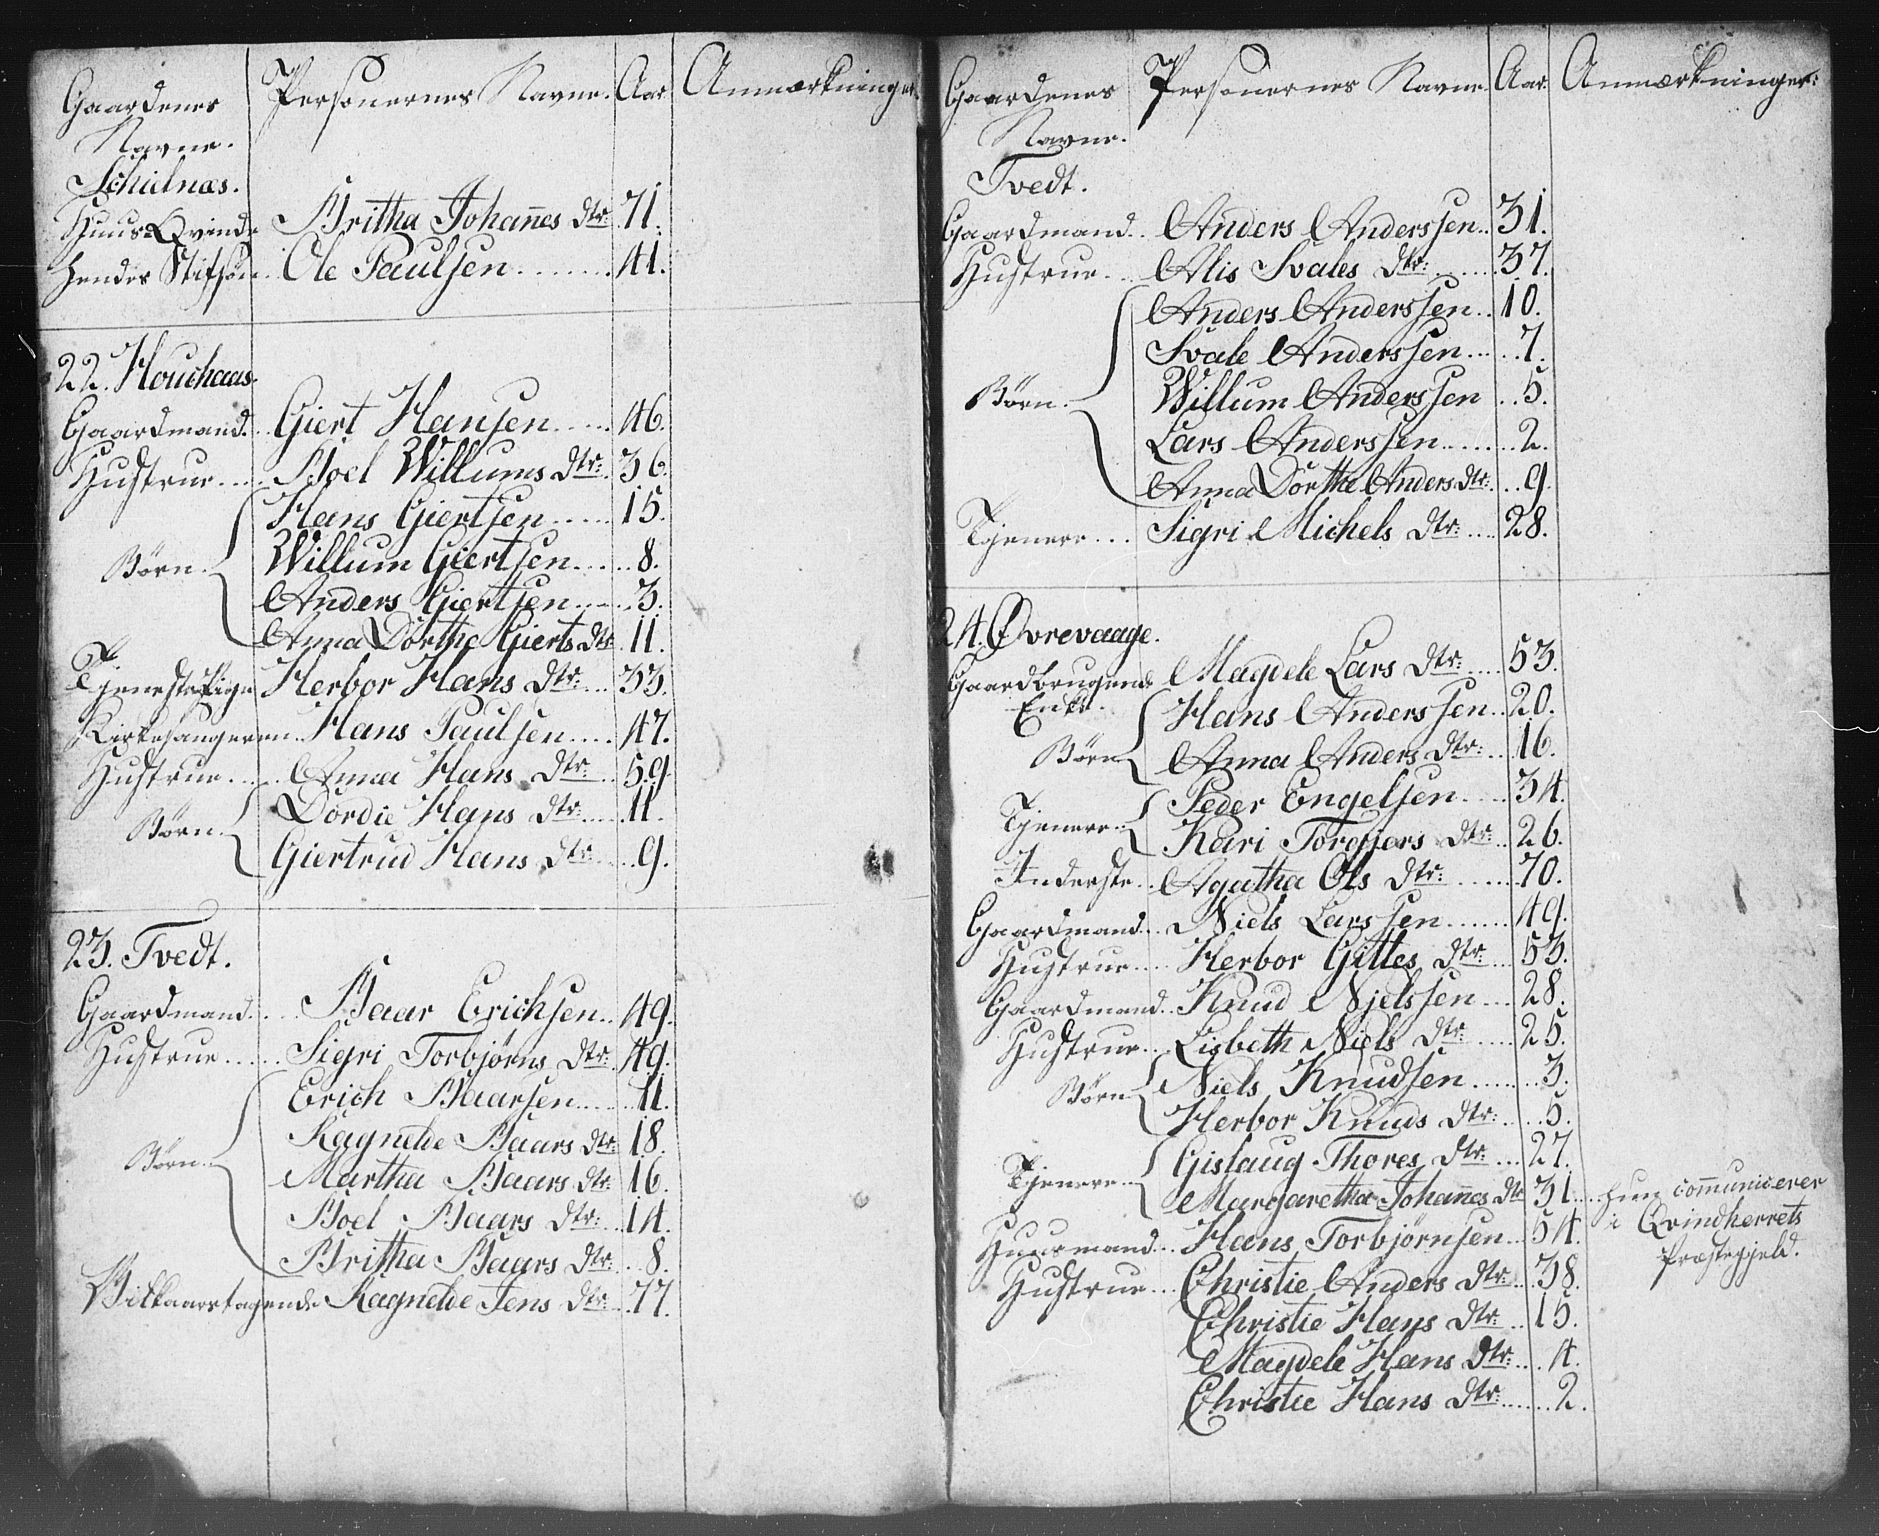 Gaardenes Navne. Personernes Navne. Aar Anmærkninger
Schielnæs.
Huus-Qvinde Britha Johannes Dtr: 71.
hendes Stifsøn Ole Paulsen 41.
22. Houchaas.
Gaardmand. Giert Hansen 46.
Hustrue Boel Willums Dtr: 36.
Hans Giertsen 15.
Børn. Willum Giertsen 8.
Anders Giertsen 3.
Anna Dorthe Gierts Dtr 11.
Tjenestepige Herbor Hans Dtr: 33.
Kirkesangeren Hans Paulsen 47.
Hustrue Anna Hans Dtr: 59.
Børn. Dordie Hans Dtr: 11.
Giertrud Hans Dtr: 9.
23. Tvedt.
Gaardmand. Baar Erichsen 49.
Hustrue Sigri Torbjørns Dtr: 49.
Erich Baarsen 11.
Ragnelde Baars Dtr: 18.
Børn. Martha Baars Dtr: 16.
Boel Baars Dtr: 14.
Britha Baars Dtr: 8.
Vilkaarstagende Ragnelde Jens Dtr: 77.
Gaardenes Navne. Personernes Navne. Aar. Anmærkninger:
Tvedt.
Gaardmand. Anders Anderssen 31.
Hustrue Alis Svales Dtr: 37.
Anders Anderssen 10.
Svale Anderssen 7.
Børn. Willum Anderssen 5.
Lars Anderssen 2.
Anna Dorthe Anders Dtr: 9.
Tjenere Sigri Michels Dtr: 28.
24. Øvrevaage.
Gaardbrugende Magdele Lars Dtr: 53.
Enke. Hans Anderssen 20.
Børn Anna Anders Dtr: 16.
Peder Engelsen 34.
Tjenere Kari Torgjers Dtr: 26.
Inderste Agatha Ols Dtr: 70.
Gaardmand Niels Larssen 49.
Hustrue Herbor Gittes Dtr: 53.
Gaardmand Knud Njelssen 28.
Hustrue Lisbeth Niels Dtr: 25.
Børn Niels Knudsen 3.
Herbor Knuds Dtr: 5.
Gislaug Thores Dtr: 27.
Tjenere Margaretha Johannes Dtr 31. hun communicerer
i Qvindherrets
Præstegjeld.
Huusmand Hans Torbjørnsen 54.
Hustrue Christie Anders Dtr: 38.
Christie Hans Dtr: 15.
Magdele Hans Dtr: 4.
Christie Hans Dtr: 2.